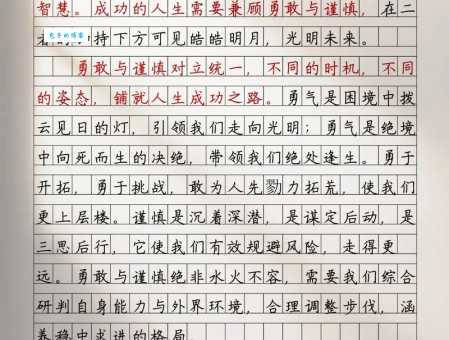 智慧。成功的人生需要兼顾勇敢与谨慎，在二
者的 持下方可见皓皓明月，光明未来。
勇敢与谨慎对立统一，不同的时机，不同
的姿态，铺就人生成功之路。勇气是困境中拨
云见日的灯，引领我们走向光明；勇气是绝境
中向死而生的决绝，带领我们绝处逢生。勇于
开拓，勇于挑战，敢为人先勠力拓荒，使我们
更上层楼。谨慎是沉着深潜，是谋定后动，是
三思后行，它使我们有效规避风险，走得更
远。勇敢与谨慎绝非水火不容，需要我们综合
研判自身能力与外界环境，合理调整步伐，涵
养稳中求进的格局。